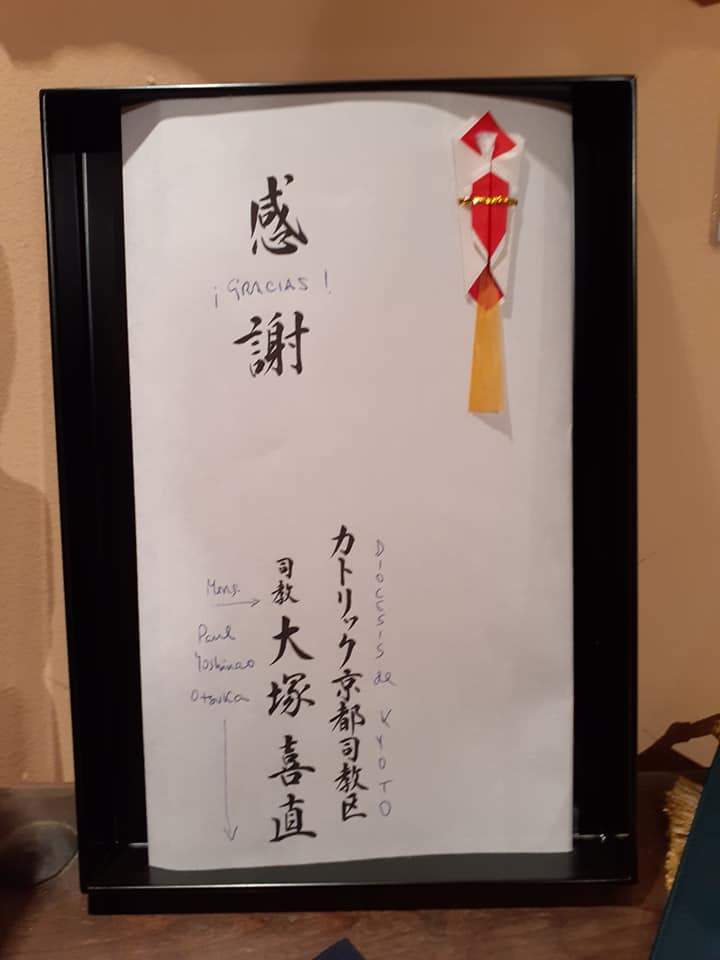 感謝
¡GRACIAS!
カトリック京都司教区
DIOCESIS de KYOTO
司教 大塚喜直
Mons.
Paul
Yoshinao
Otsuka